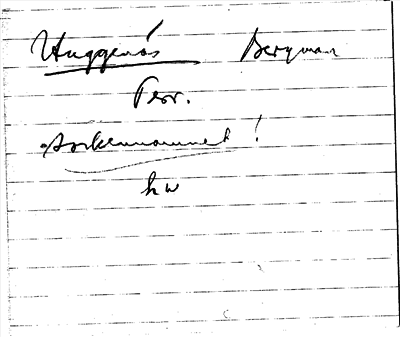 Huggenäs Bergman
Pers.
sockennamnet!
hw